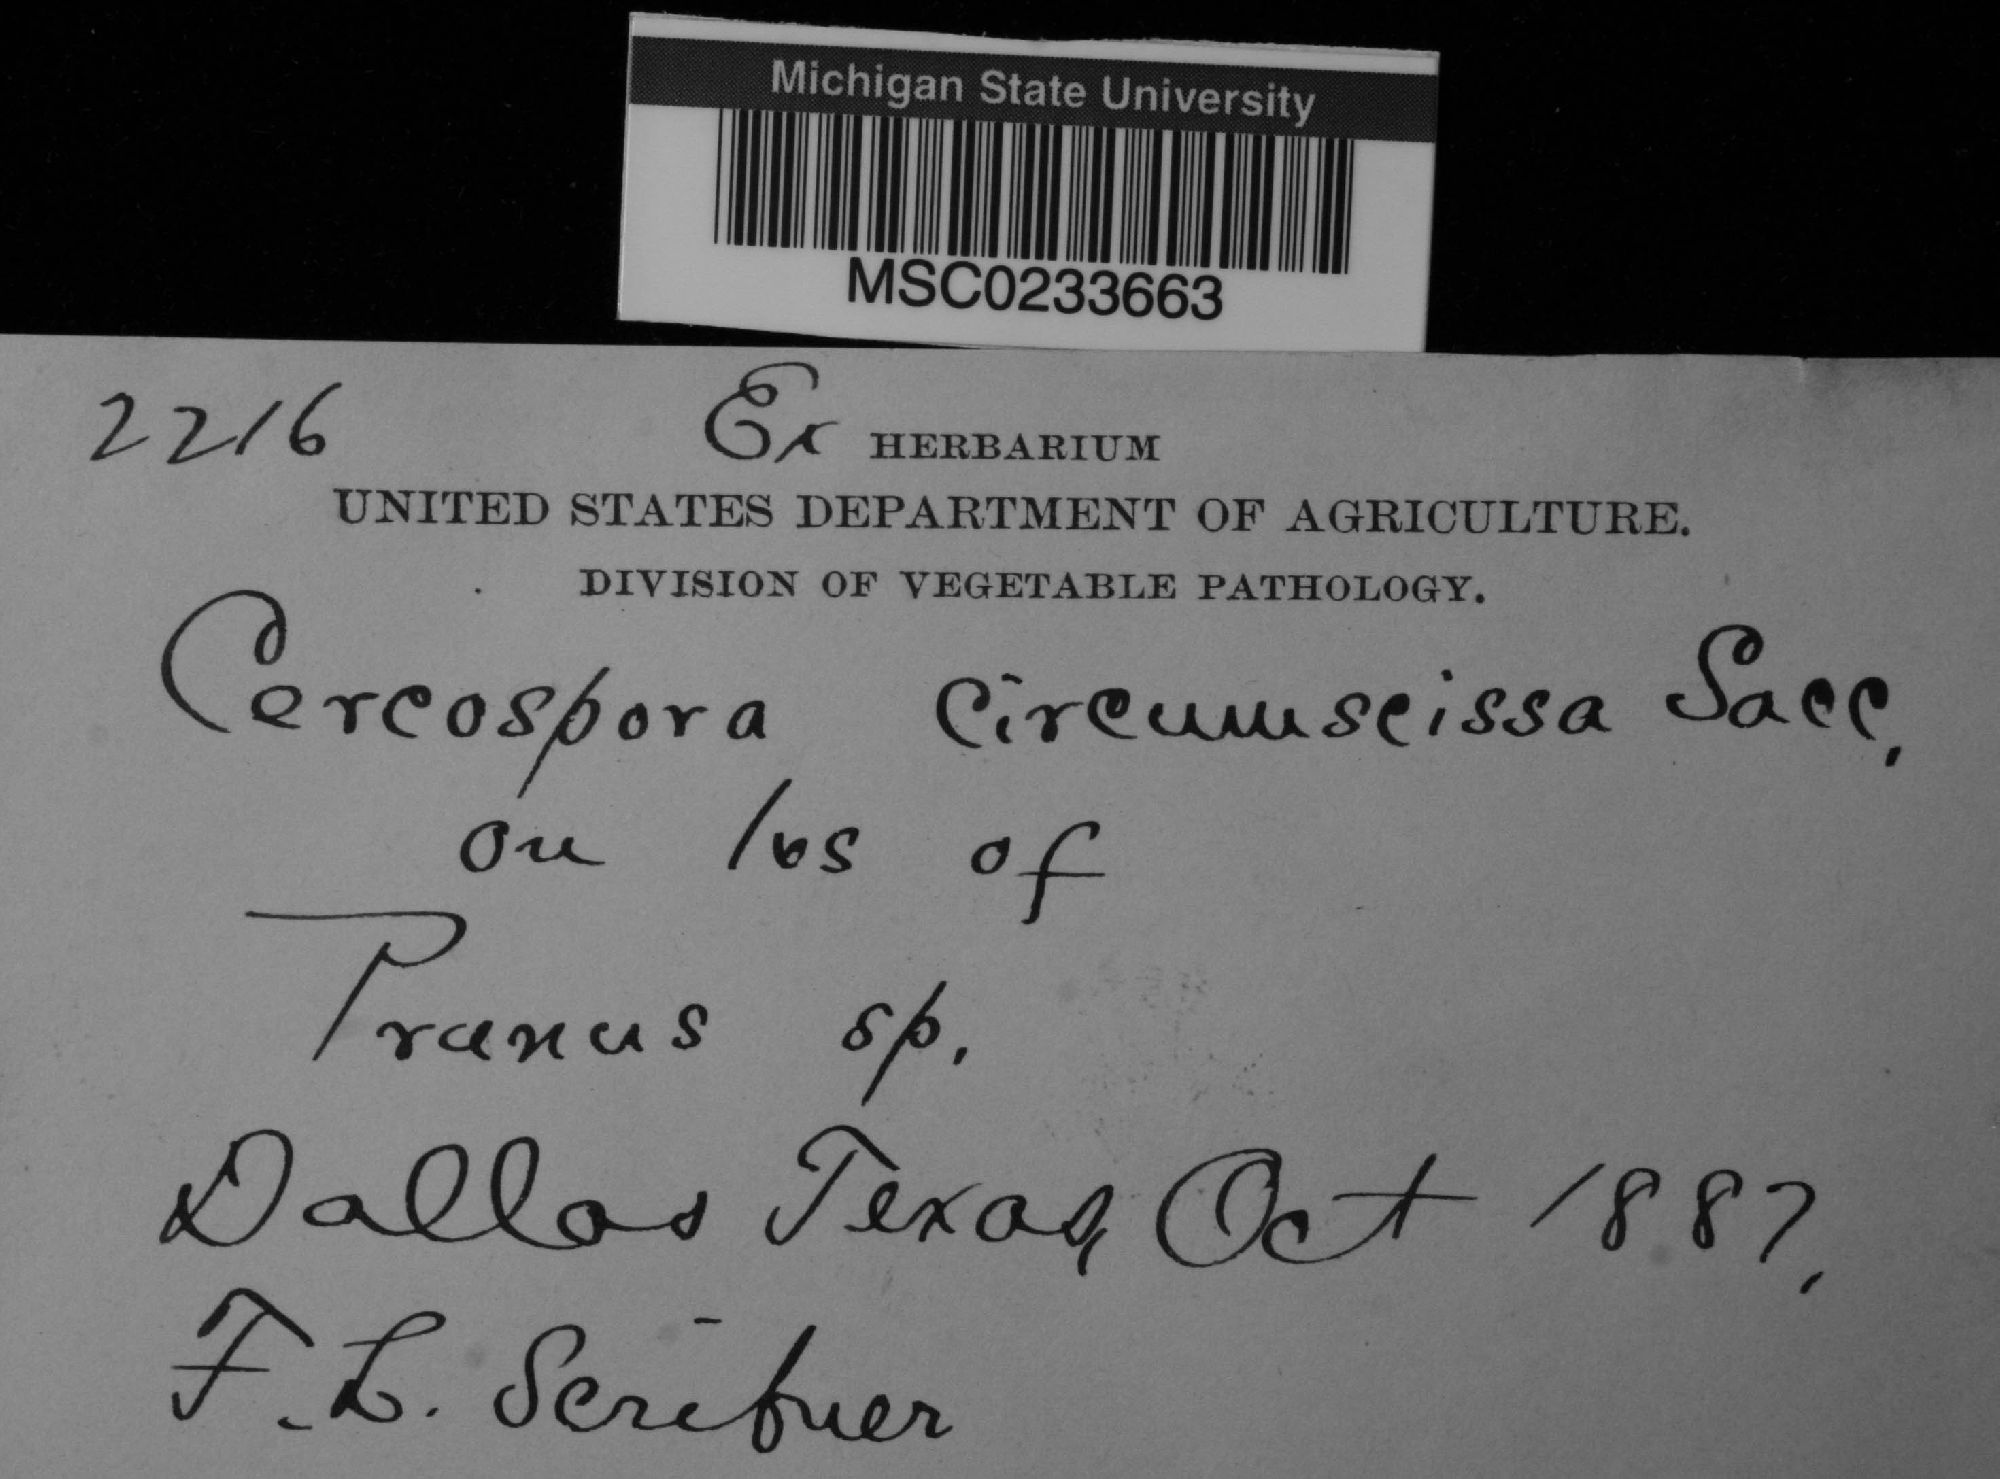 Michigan State University
MSC0233663
2216 Ex HERBARIUM
UNITED STATES DEPARTMENT OF AGRICULTURE.
DIVISION OF VEGETABLE PATHOLOGY.
Cercospora circumscissa Sacc.
on lvs of
Prunus sp.
Dallas Texas, Oct 1887.
F. L. Scribner